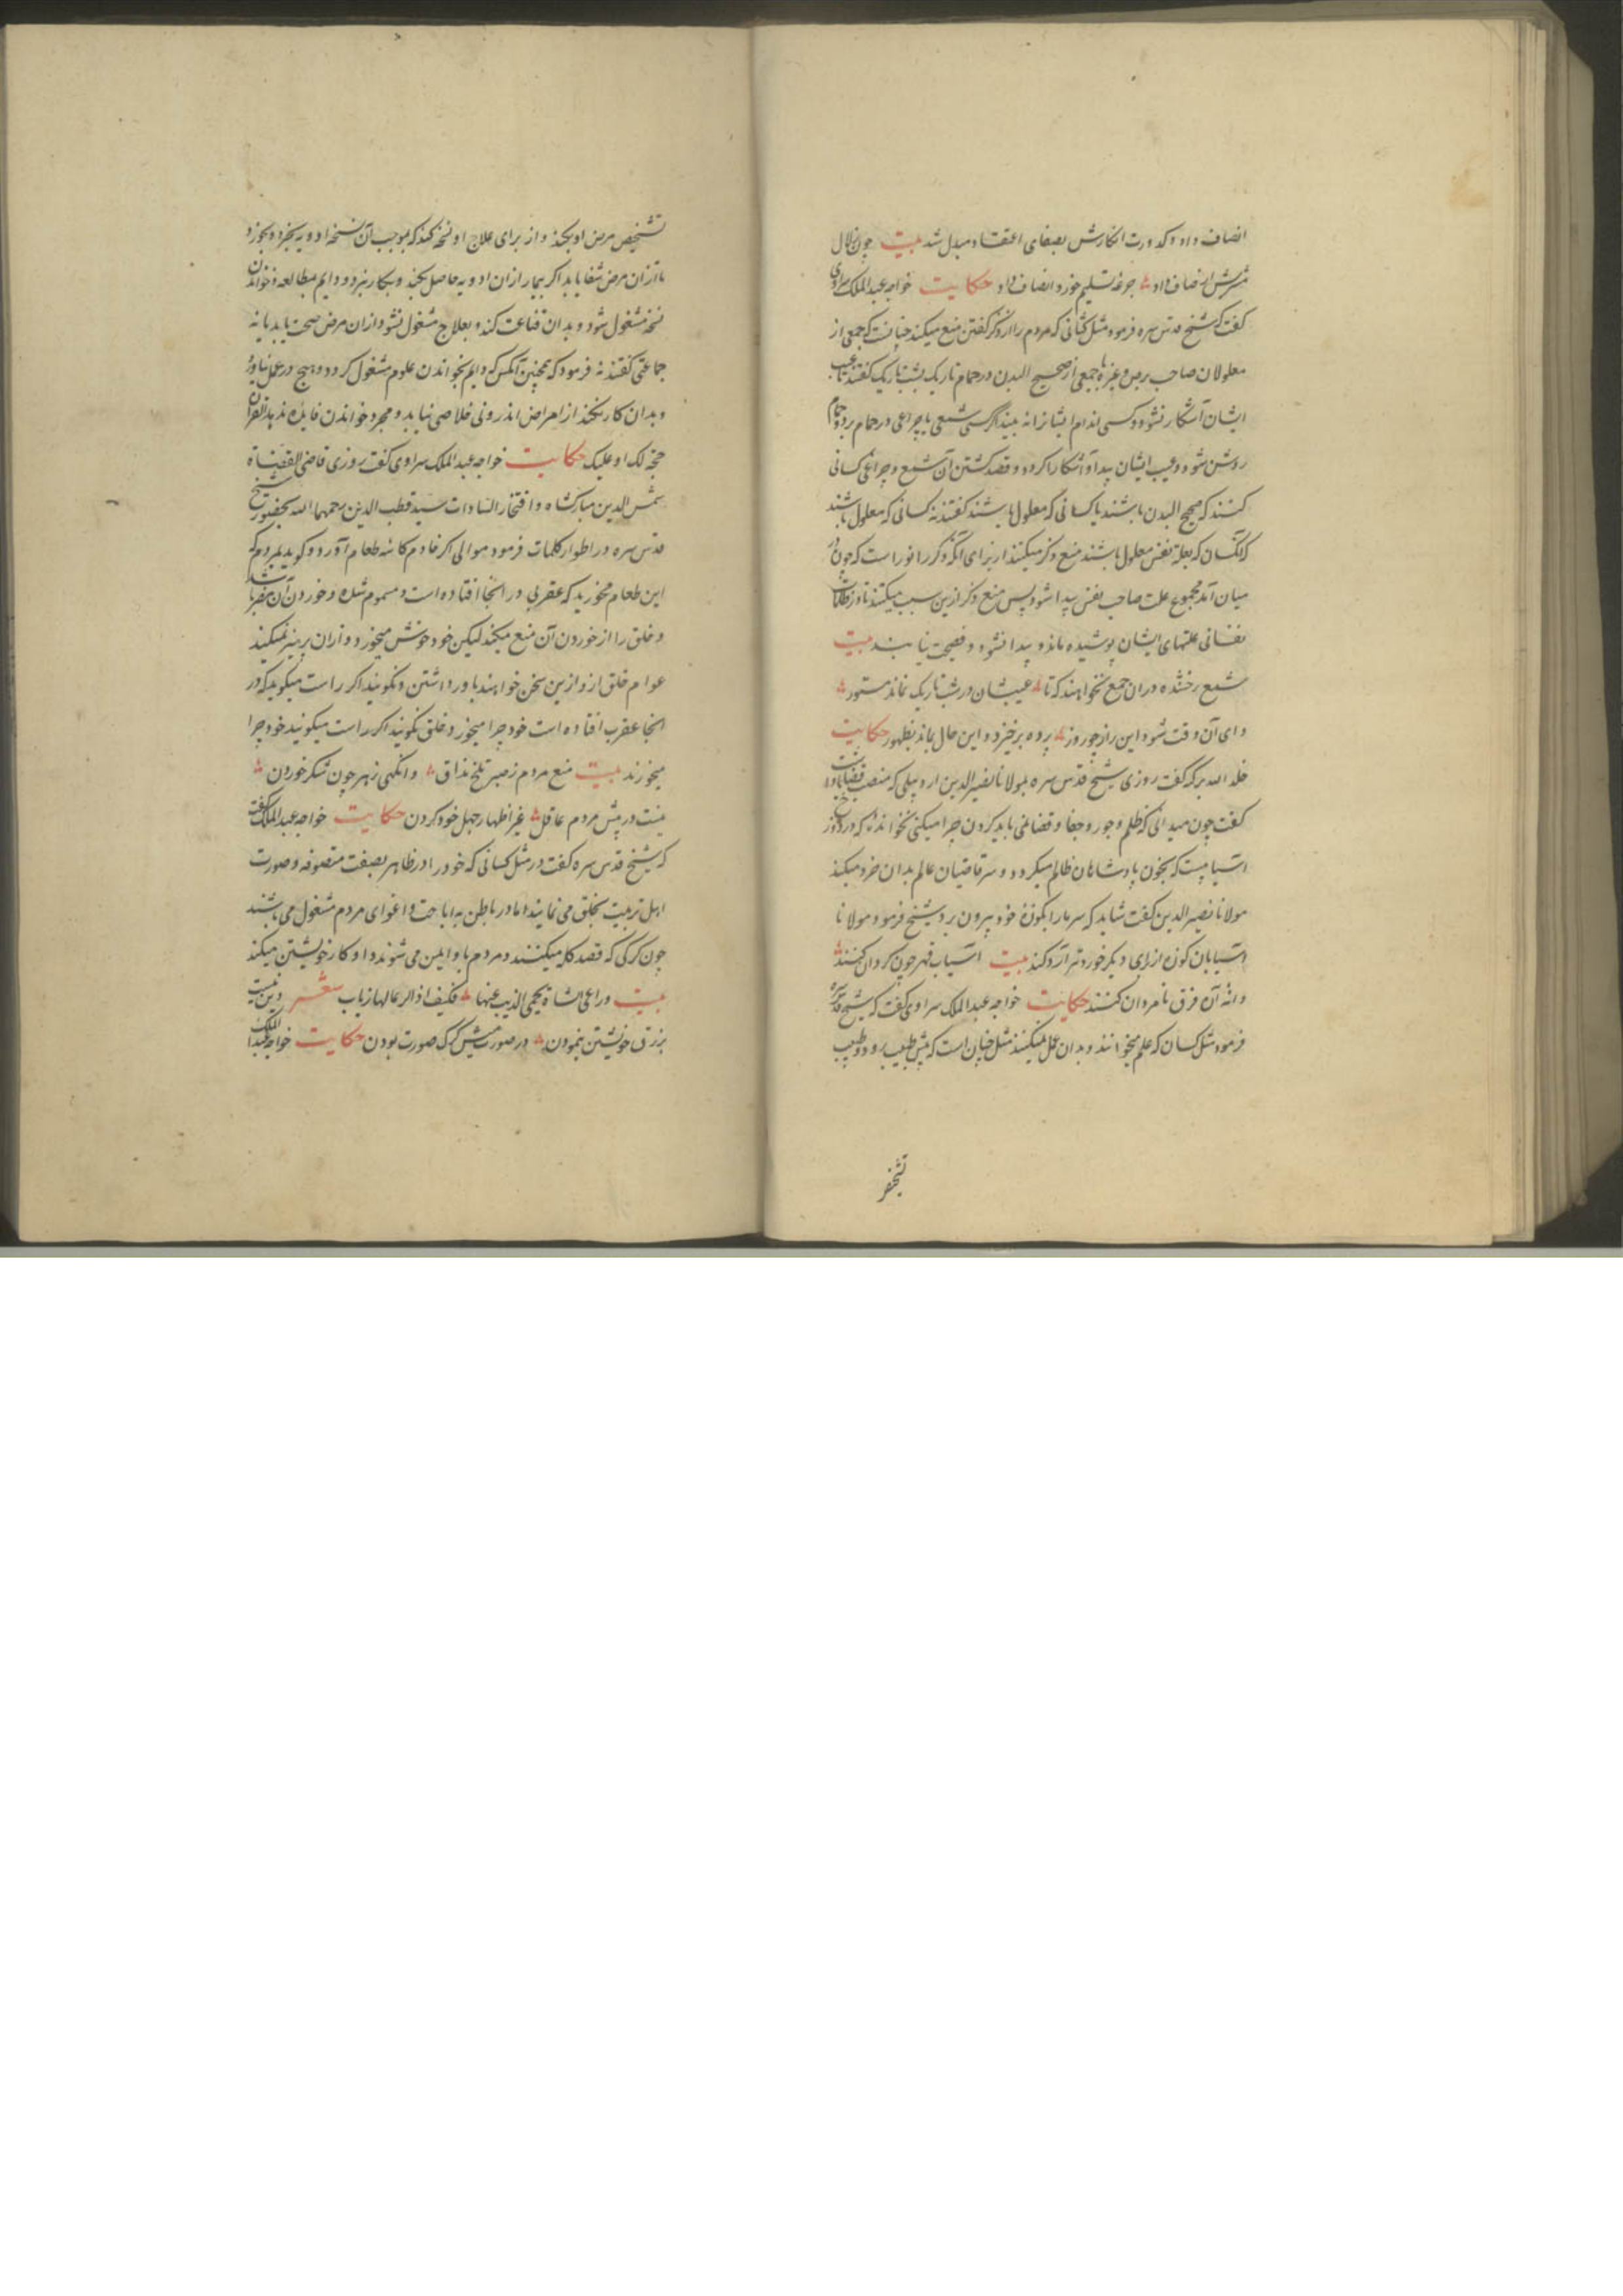 انصاف داد و کدورت انکارش بصفای اعتقاد مبدل شد بیت چون زلال
شربش انصاف داد جرعهٔ تسلیم خورد انصاف داد حکایت خواجه عبدالملک سراوی
گفت که شیخ قدس سره فرمود مثل کسانی که مردم را از ذکر گفتن منع میکنند چنانست که جمعی از
معلولان صاحب برص و غیره با جمعی از صحیح البدن در حمام تاریک بشب تاریک گفتند تا عیب
ایشان آشکار نشود و کسی اندام ایشانرا نه بیند اگر کسی شمعی یا چراغی در حمام برد و حمام
روشن شود و عیب ایشان پیدا و آشکارا کردد و قصد کشتن آن شمع و چراغ کسانی
کنند که صحیح البدن باشند یا کسانی که معلول باشند گفتند نه کسانی که معلول باشند
که آنکسان که بعلة نفس معلول باشند منع ذکر میکنند از برای آنکه ذکر را نوراست که چون در
میان آمد مجموع علت صاحب نفس پیدا شود پس منع ذکر ازین سبب میکنند تا در ظلمات
نفسانی علتهای ایشان پوشیده ماند و پیدا نشود و فضیحت نیابند بیت
شمع رخشنده دران جمع نخواهند که تا عیبشان در شب تاریک نماند مستور
وای آن وقت شود این راز چو روز پرده برخیزد و این حال بماند بظهور حکایت
خلد الله برکه گفت روزی شیخ قدس سره بمولانا نصیرالدین اردبیلی که منصب قضا داشت
گفت چون میدانی که ظلم و جور و جفا و قضا نمی باید کردن چرا میکنی نخوانده که در دوزخ
آسیابیست که بخون پادشاهان ظالم میکردد و سر قاضیان عالم بدان خرد میکند
مولانا نصیرالدین گفت شاید که سر ما را بکوزهٔ خود بیرون برد شیخ فرمود مولانا
آسیابان کوزه از برای دیگر خوردتر آرد کند بیت آسیاب قهر چون کردان کنند
دانهٔ آن فرق نامردان کنند حکایت خواجه عبدالملک سراوی گفت که شیخ قدس سره
فرمود مثل کسان که علم میخوانند و بدان عمل نمیکنند مثل چنان است که پیش طبیب رود و طبیب
تشخیص
تشخیص مرض او بکند و از برای علاج او نسخه کند که بموجب آن نسخه ادویه بخرد و بخورد
تا از ان مرض شفا یابد اکر بیمار از ان ادویه حاصل نکند و بکار نبرد و دایم بمطالعه و خواندن
نسخه مشغول شود و بدان قناعت کند و بعلاج مشغول نشود از ان مرض صحت یابد یا نه
جماعتی گفتند نه فرمود که همچنین آنکس که دایم بخواندن علوم مشغول کردد و هیچ در عمل نیاورد
و بدان کار نکند از امراض اندرونی خلاصی نیابد و مجرد خواندن فایده ندهد القرآن
حجة لک او علیک حکایت خواجه عبدالملک سراوی گفت روزی قاضی القضاة
شمس الدین مبارکشاه و افتخار السادات سید قطب الدین رحمهما الله بحضور شیخ
قدس سره در اطوار کلمات فرمود موالی اکر خادم کاسه طعام آورد و کوید بمردم که
این طعام مخورید که عقربی در اینجا افتاده است و مسموم شده و خوردن آن مضر باشد
و خلق را از خوردن آن منع میکند لیکن خود خوش میخورد و از ان پرهیز نمیکند
عوام خلق از و ازین سخن خواهند باور داشتن و نکویند اکر راست میکوید که در
اینجا عقرب افتاده است خود چرا میخورد خلق نکویند اکر راست میکویند خود چرا
میخورند بیت منع مردم ز صبر تلخ مذاق وانکهی زهر چون شکر خوردن
نیست در پیش مردم عاقل غیر اظهار جهل خود کردن حکایت خواجه عبدالملک گفت
که شیخ قدس سره گفت در مثل کسانی که خود را در ظاهر بصفت متصوفه و صورت
اهل تربیت بخلق می نمایند اما در باطن به اباحت و اغوای مردم مشغول می باشند
چون کرکی که قصد کله میکنند و مردم با و ایمن می شوند و او کار خویشتن میکند
بیت وراعی الشاة یحمی الذیب عنها فکیف اذا الرعا لها ذیاب شعر
خویشتن نمودن در صورت میش کرک صورت بودن حکایت خواجه عبدالملک